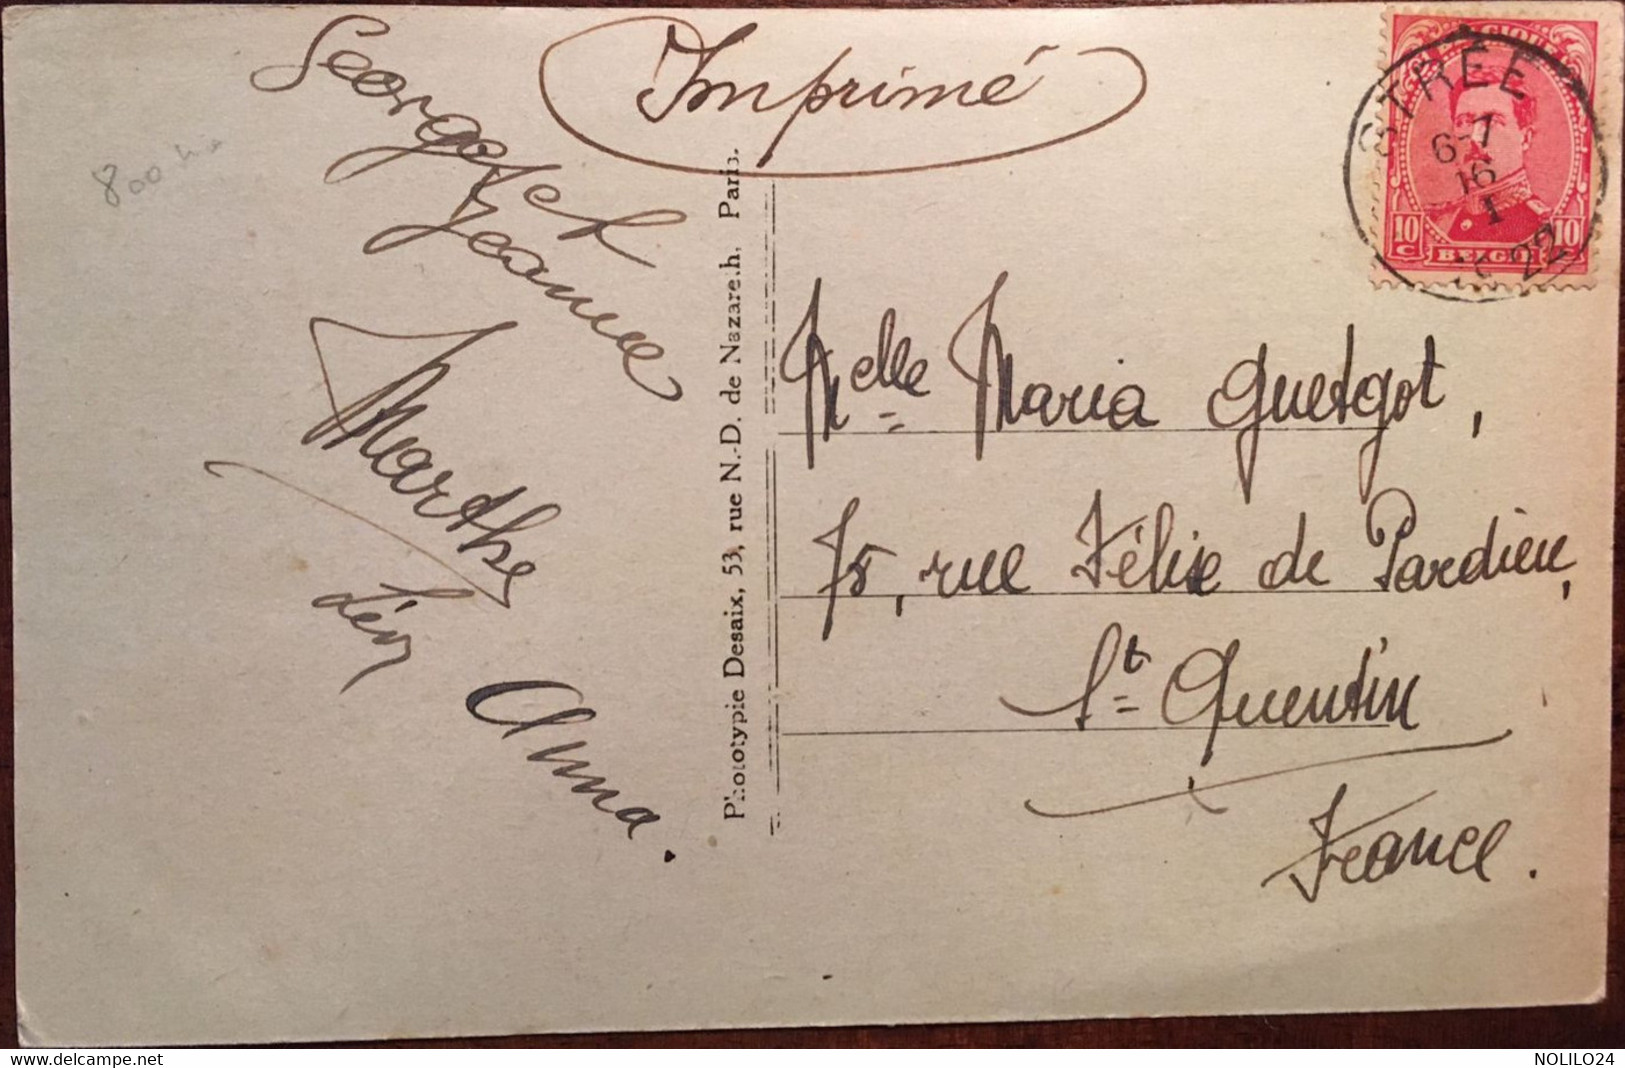 Imprimé
Georges et
Jeanne
Marthe
Léon
Anna.
800
Phototypie Desaix, 53, rue N.-D. de Nazareth, Paris.
BELGIQUE
10 c
BELGIË
10 c
STRÉE
6-7
16
1
22
Melle Maria Guetgot,
75, rue Félix de Pardieu,
St Quentin
France.
NOLILO24